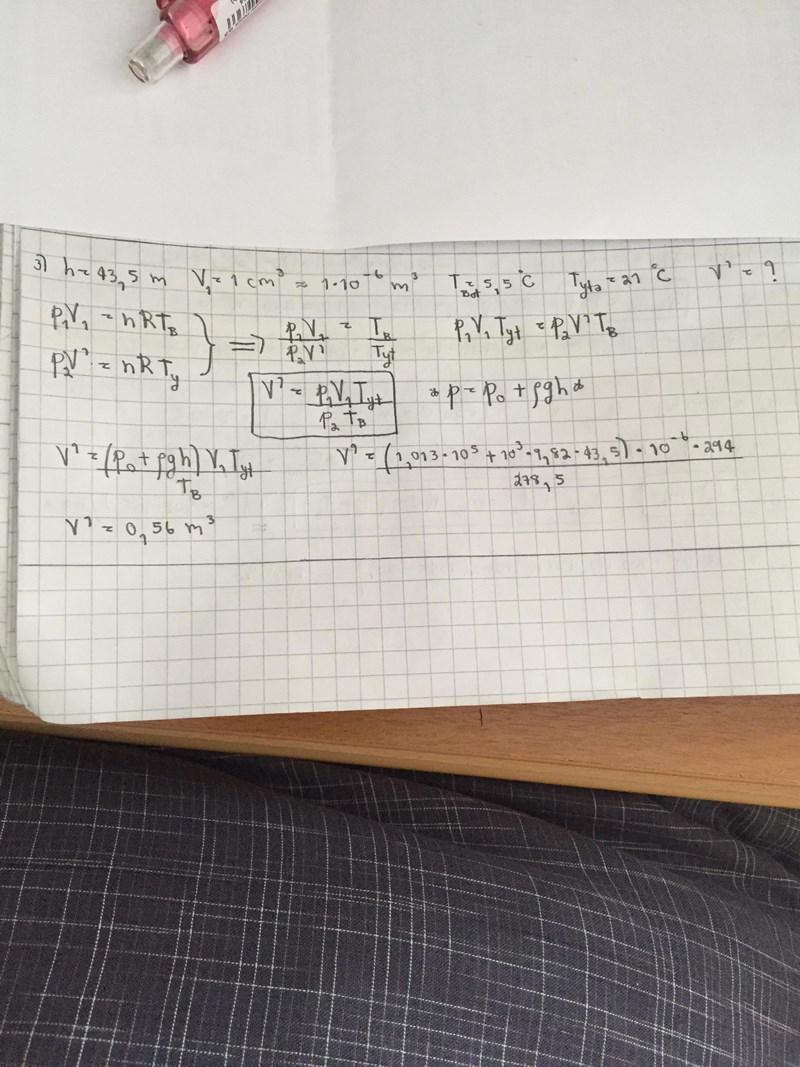 3) h = 43,5 m V₁ = 1 cm³ = 1·10⁻⁶ m³ T_Bot = 5,5 °C T_yta = 21 °C V? = ?
p₁V₁ = nRT_B } => p₁V₁/p₂V? = T_B/T_yt p₁V₁T_yt = p₂V?T_B
p₂V? = nRT_y
V? = p₁V₁T_yt/p₂T_B * p = p₀ + ρgh *
V? = (p₀ + ρgh) V₁T_yt/T_B V? = (1,013·10⁵ + 10³·9,82·43,5)·10⁻⁶·294/278,5
V? = 0,56 m³